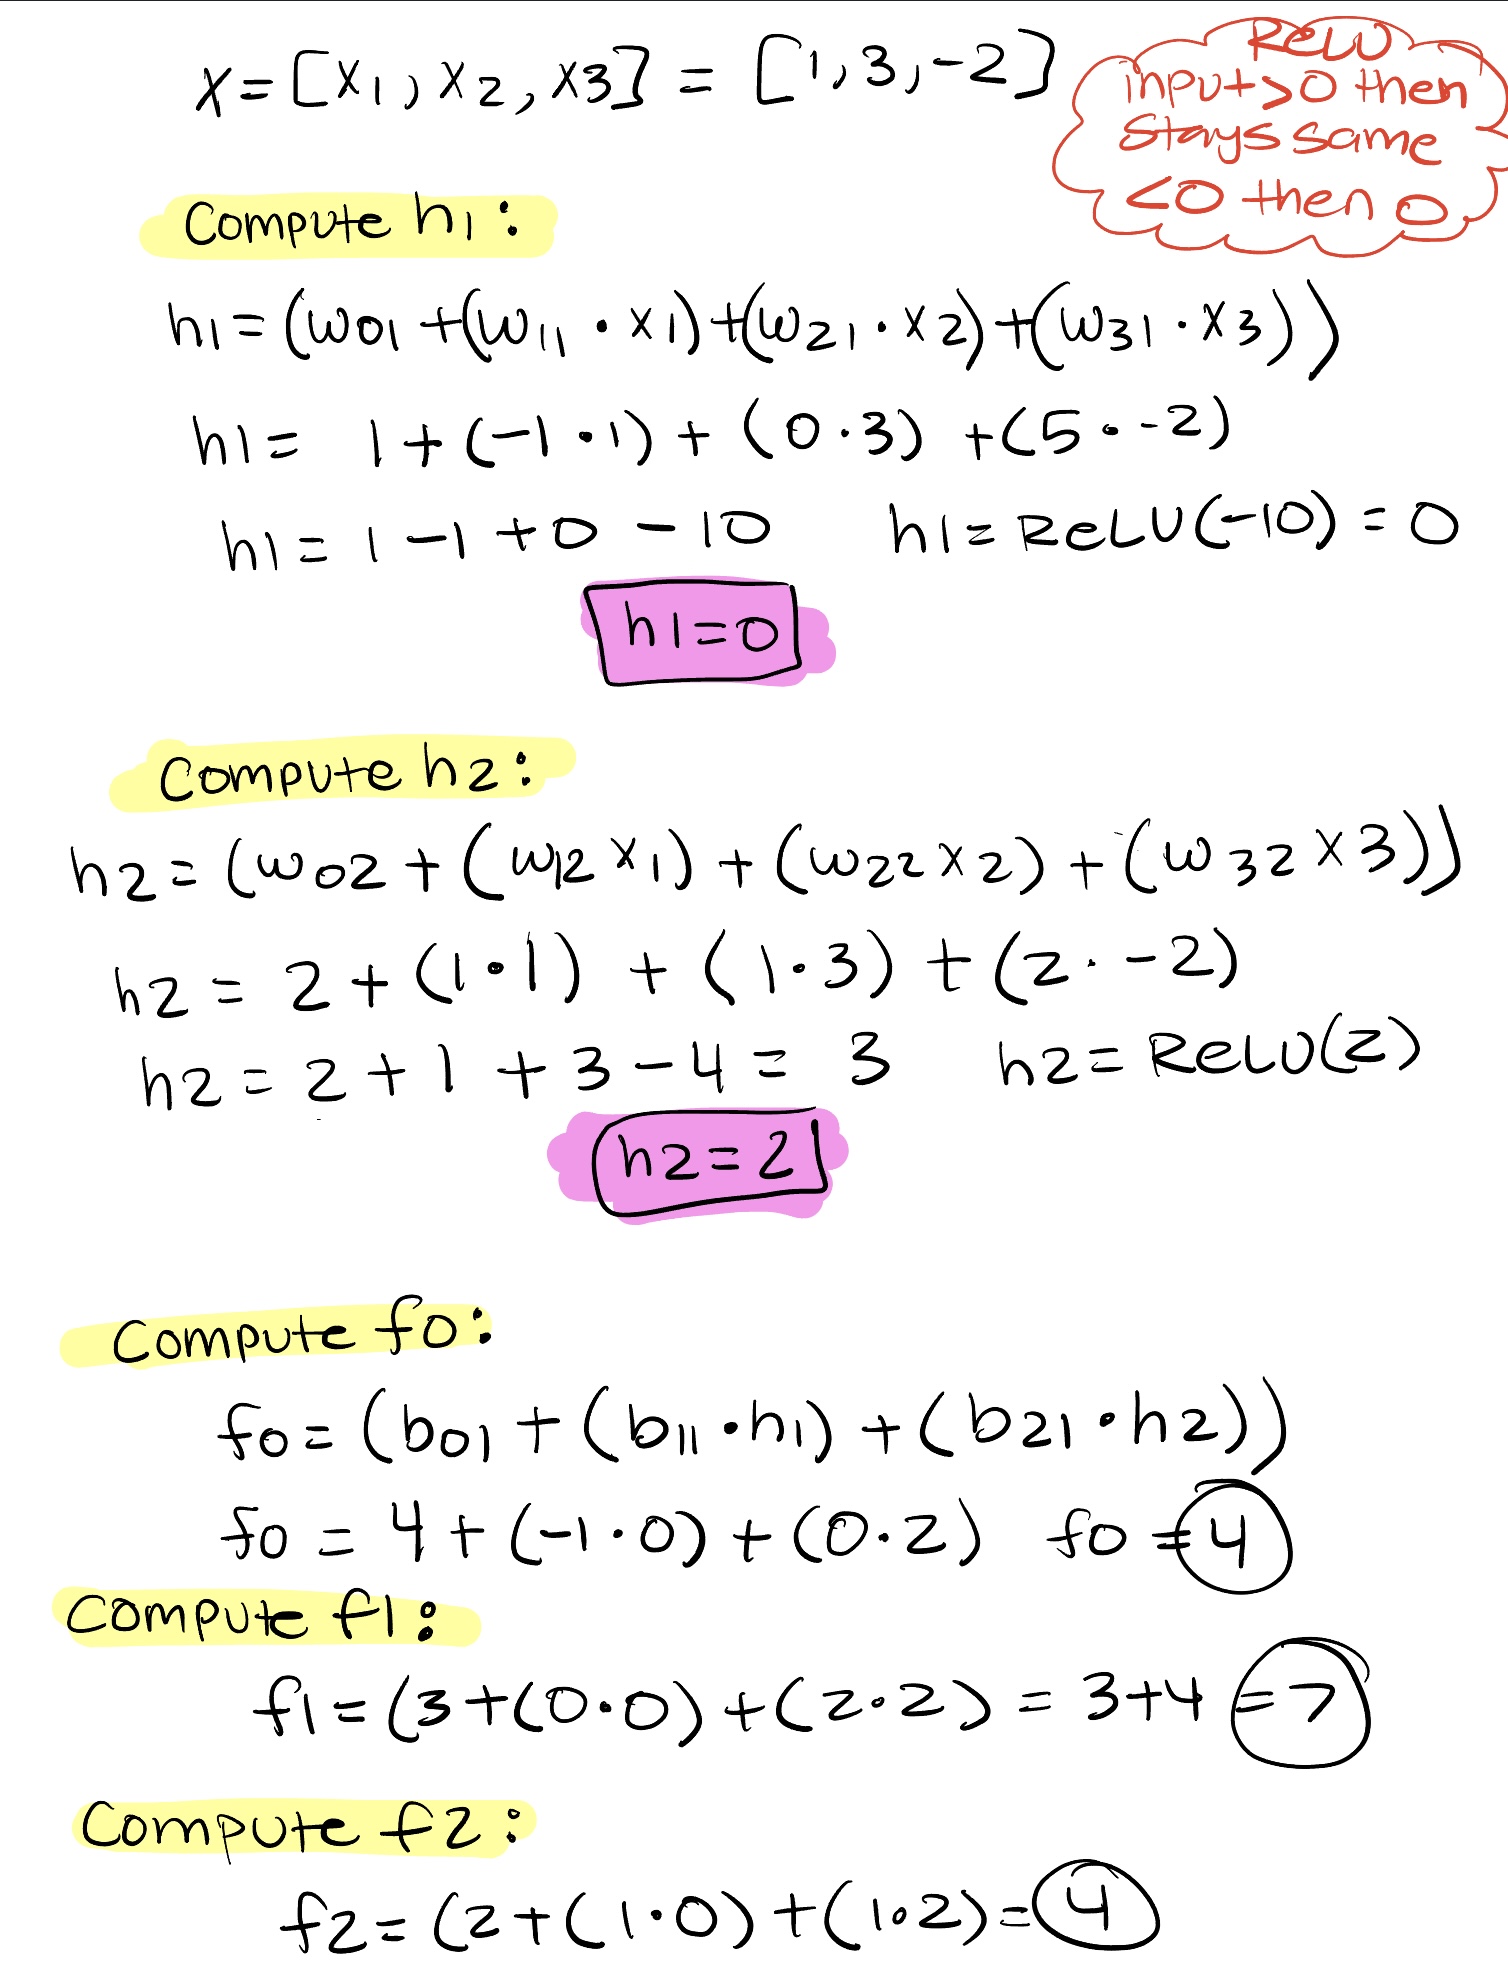 x = [x1, x2, x3] = [1, 3, -2]
ReLU
input>0 then
stays same
<0 then 0
Compute h1:
h1 = (w01 + (w11 · x1) + (w21 · x2) + (w31 · x3))
h1 = 1 + (-1 · 1) + (0 · 3) + (5 · -2)
h1 = 1 - 1 + 0 - 10 h1 = ReLU(-10) = 0
h1 = 0
Compute h2:
h2 = (w02 + (w12 x1) + (w22 x2) + (w32 x3))
h2 = 2 + (1 · 1) + (1 · 3) + (2 · -2)
h2 = 2 + 1 + 3 - 4 = 3 h2 = ReLU(2)
h2 = 2
Compute f0:
f0 = (b01 + (b11 · h1) + (b21 · h2))
f0 = 4 + (-1 · 0) + (0 · 2) f0 = 4
Compute f1:
f1 = (3 + (0 · 0) + (2 · 2) = 3 + 4 = 7
Compute f2:
f2 = (2 + (1 · 0) + (1 · 2) = 4